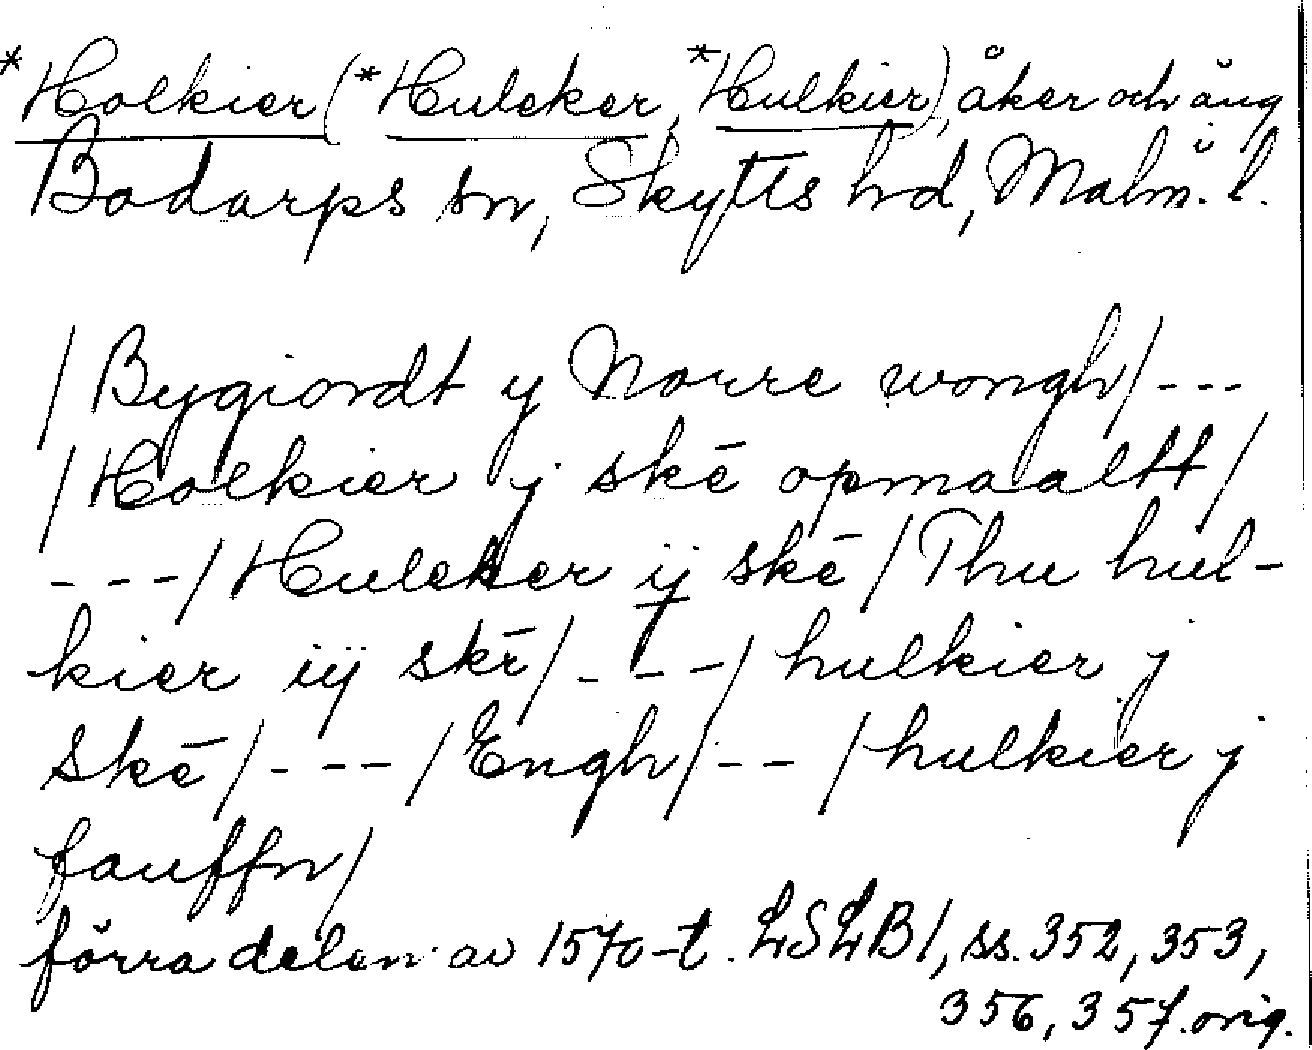 *Holkier (*Hulcker, *Hulkier), åker och äng
Bodarps sn, Skytts hd, Malm. l.
/Bygiordt y Norre wongh/---
/Holkier j skē opmaaltt/
---/Hulcker ij skē/Thu hul-
kier iij skē/---/hulkier j
skē/---/Engh/--/hulkier j
fauffn/
förra delen av 1570-t. LSLB1, ss. 352, 353,
356, 357. orig.